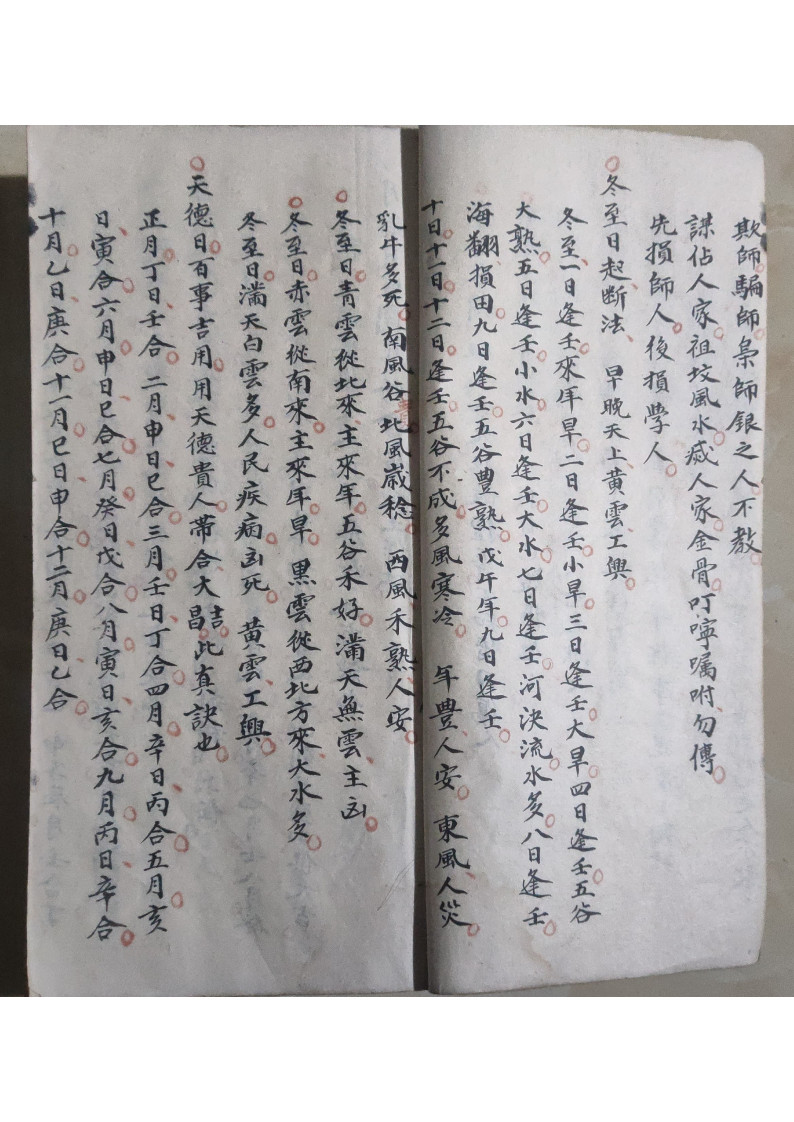 欺師騙師梟師銀之人不教
謀佔人家祖坟風水滅人家金骨叮嚀囑咐勿傳
先損師人後損學人
冬至日起断法 早晚天上黃雲工興
冬至一日逢壬來年旱二日逢壬小旱三日逢壬大旱四日逢壬五谷
大熟五日逢壬小水六日逢壬大水七日逢壬河決流水多八日逢壬
海翻損田九日逢壬五谷豊熟戊午年九日逢壬
十日十一日十二日逢壬五谷不成多風寒冷 年豊人安 東風人災
乳牛多死 南風谷貴北風歲稔 西風禾熟人安
冬至日青雲從北來主來年五谷禾好滿天無雲主凶
冬至日赤雲從南來主來年旱 黑雲從西北方來大水多
冬至日滿天白雲多人民疾病凶死 黃雲工興
天德日百事吉用用天德貴人帶合大昌吉此真訣也
正月丁日壬合 二月申日巳合三月壬日丁合四月辛日丙合五月亥
日寅合六月申日巳合七月癸日戊合八月寅日亥合九月丙日辛合
十月乙日庚合十一月巳日申合十二月庚日乙合